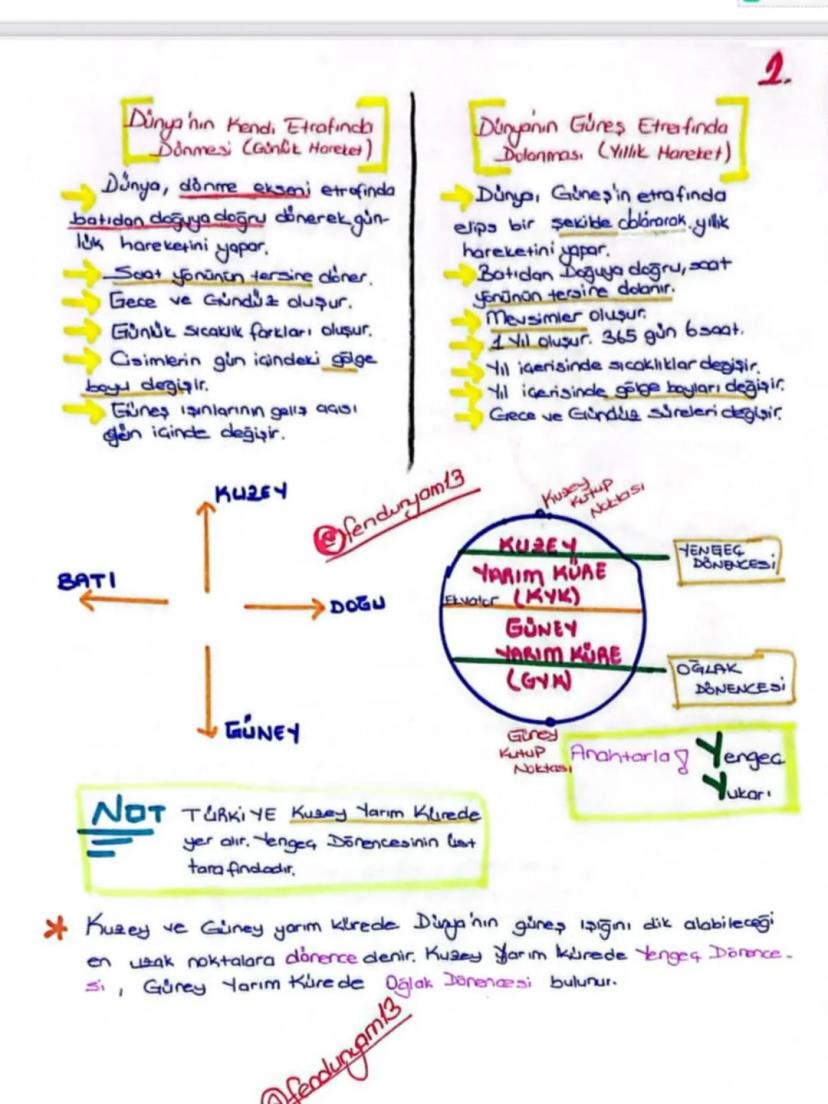 1.
Dünya'nın Kendi Etrafında
Dönmesi (Günlük Hareket)
Dünya, dönme ekseni etrafında
batıdan doğuya doğru dönerek gün-
lük hareketini yapar.
Saat yönünün tersine döner.
Gece ve Gündüz oluşur.
Günlük sıcaklık farkları oluşur.
Cisimlerin gün içindeki gölge
boyu değişir.
Güneş ışınlarının geliş açısı
gün içinde değişir.
Dünya'nın Güneş Etrafında
Dolanması (Yıllık Hareket)
Dünya, Güneş'in etrafında
elips bir şekilde dolanarak yıllık
hareketini yapar.
Batıdan Doğuya doğru, saat
yönünün tersine dolanır.
Mevsimler oluşur.
1 Yıl oluşur. 365 gün 6 saat.
Yıl içerisinde sıcaklıklar değişir.
Yıl içerisinde gölge boyları değişir.
Gece ve Gündüz süreleri değişir.
@fendunyam13
KUZEY
BATI
DOĞU
GÜNEY
Kuzey
Kutup
Noktası
KUZEY
YARIM KÜRE
(KYK)
Ekvator
GÜNEY
YARIM KÜRE
(GYK)
YENGEÇ
DÖNENCESİ
OĞLAK
DÖNENCESİ
Güney
Kutup
Noktası
Anahtarla!
Yengeç
Yukarı
NOT TÜRKİYE Kuzey Yarım Kürede
yer alır. Yengeç Dönencesinin üst
tarafındadır.
* Kuzey ve Güney yarım kürede Dünya'nın güneş ışığını dik alabileceği
en uzak noktalara dönence denir. Kuzey Yarım kürede Yengeç Dönence-
si, Güney Yarım Kürede Oğlak Dönencesi bulunur.
@fendunyam13